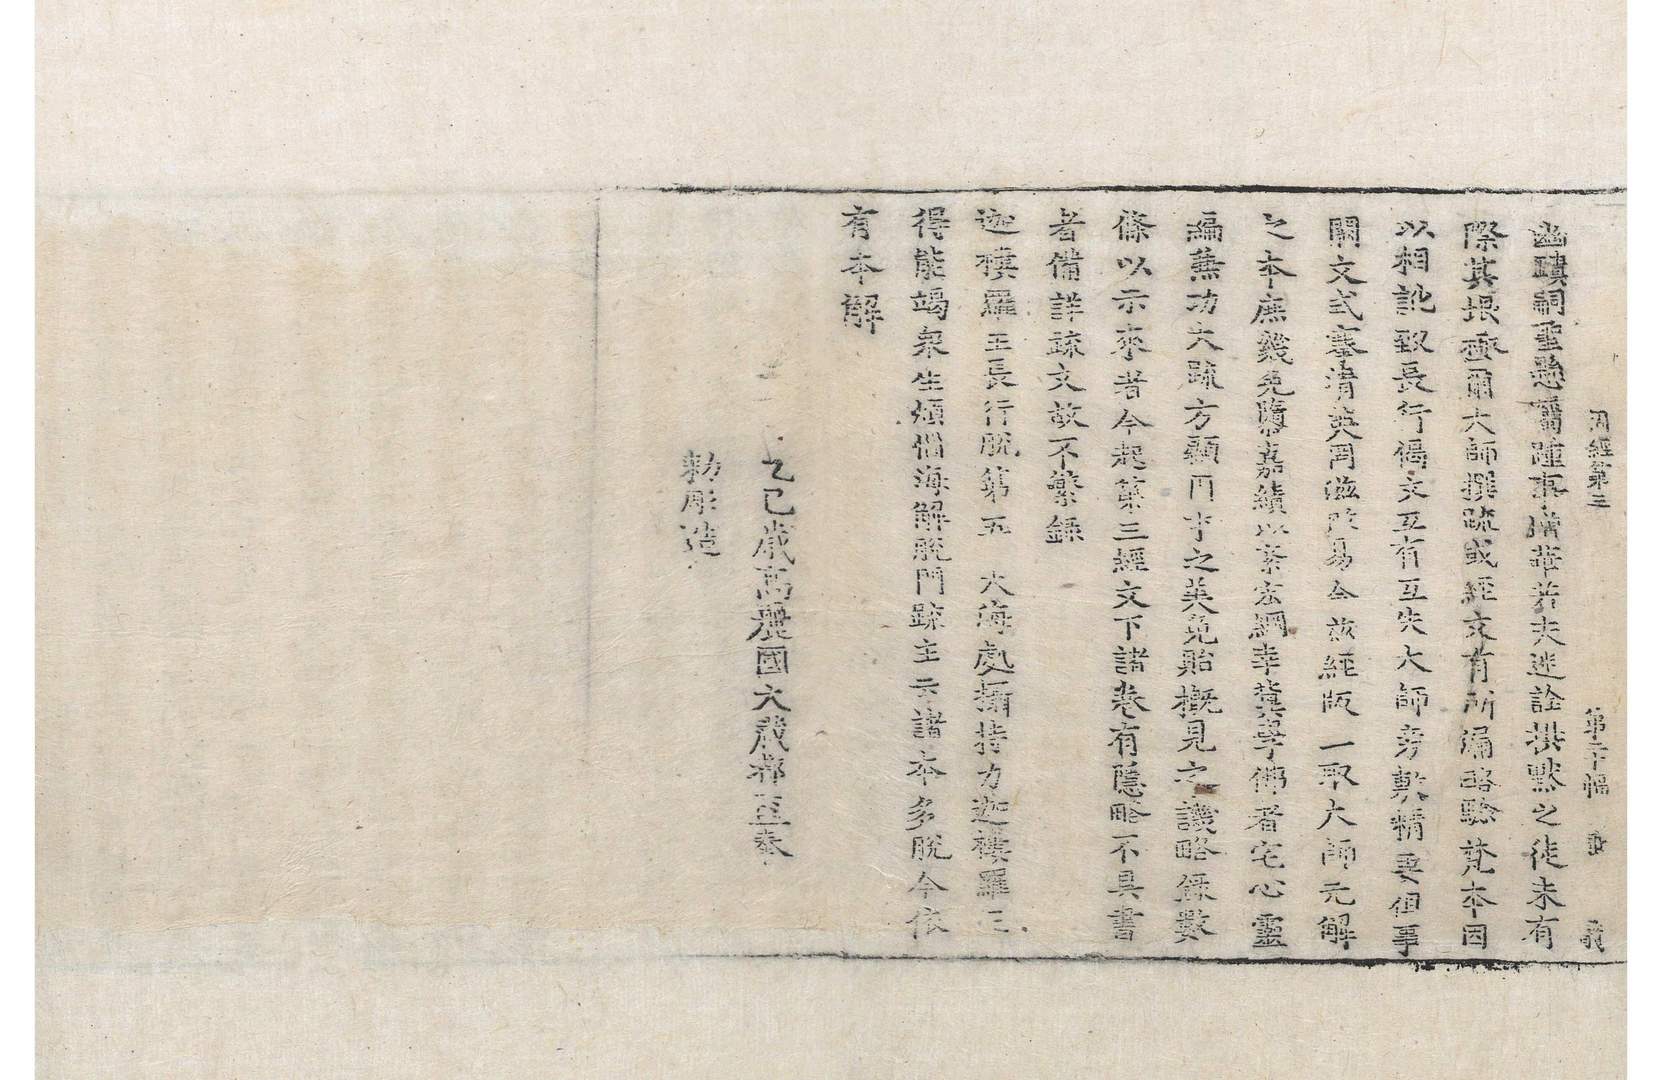 周經第三 第二十幅
幽賾嗣聖懸
際其垠極爾大師撰疏或經文有所漏略驗梵本因
以相訛致長行偈文互有互失大師旁敷精要但事
闕文式塞清英罔滋改易今茲經版一取大師元解
之本庶幾免隳嘉績以紊宏綱幸冀學佛者宅心靈
編無功大疏方顯門才之英免貽概見之譏略錄數
條以示來者今起第三經文下諸卷有隱略不具書
者備詳疏文故不繁錄
迦樓羅王長行脫第五 大海處攝持力迦樓羅王
得能竭衆生煩惱海解脫門疏主示諸本多脫今依
有本解
乙巳歲高麗國大藏都監奉
勅彫造